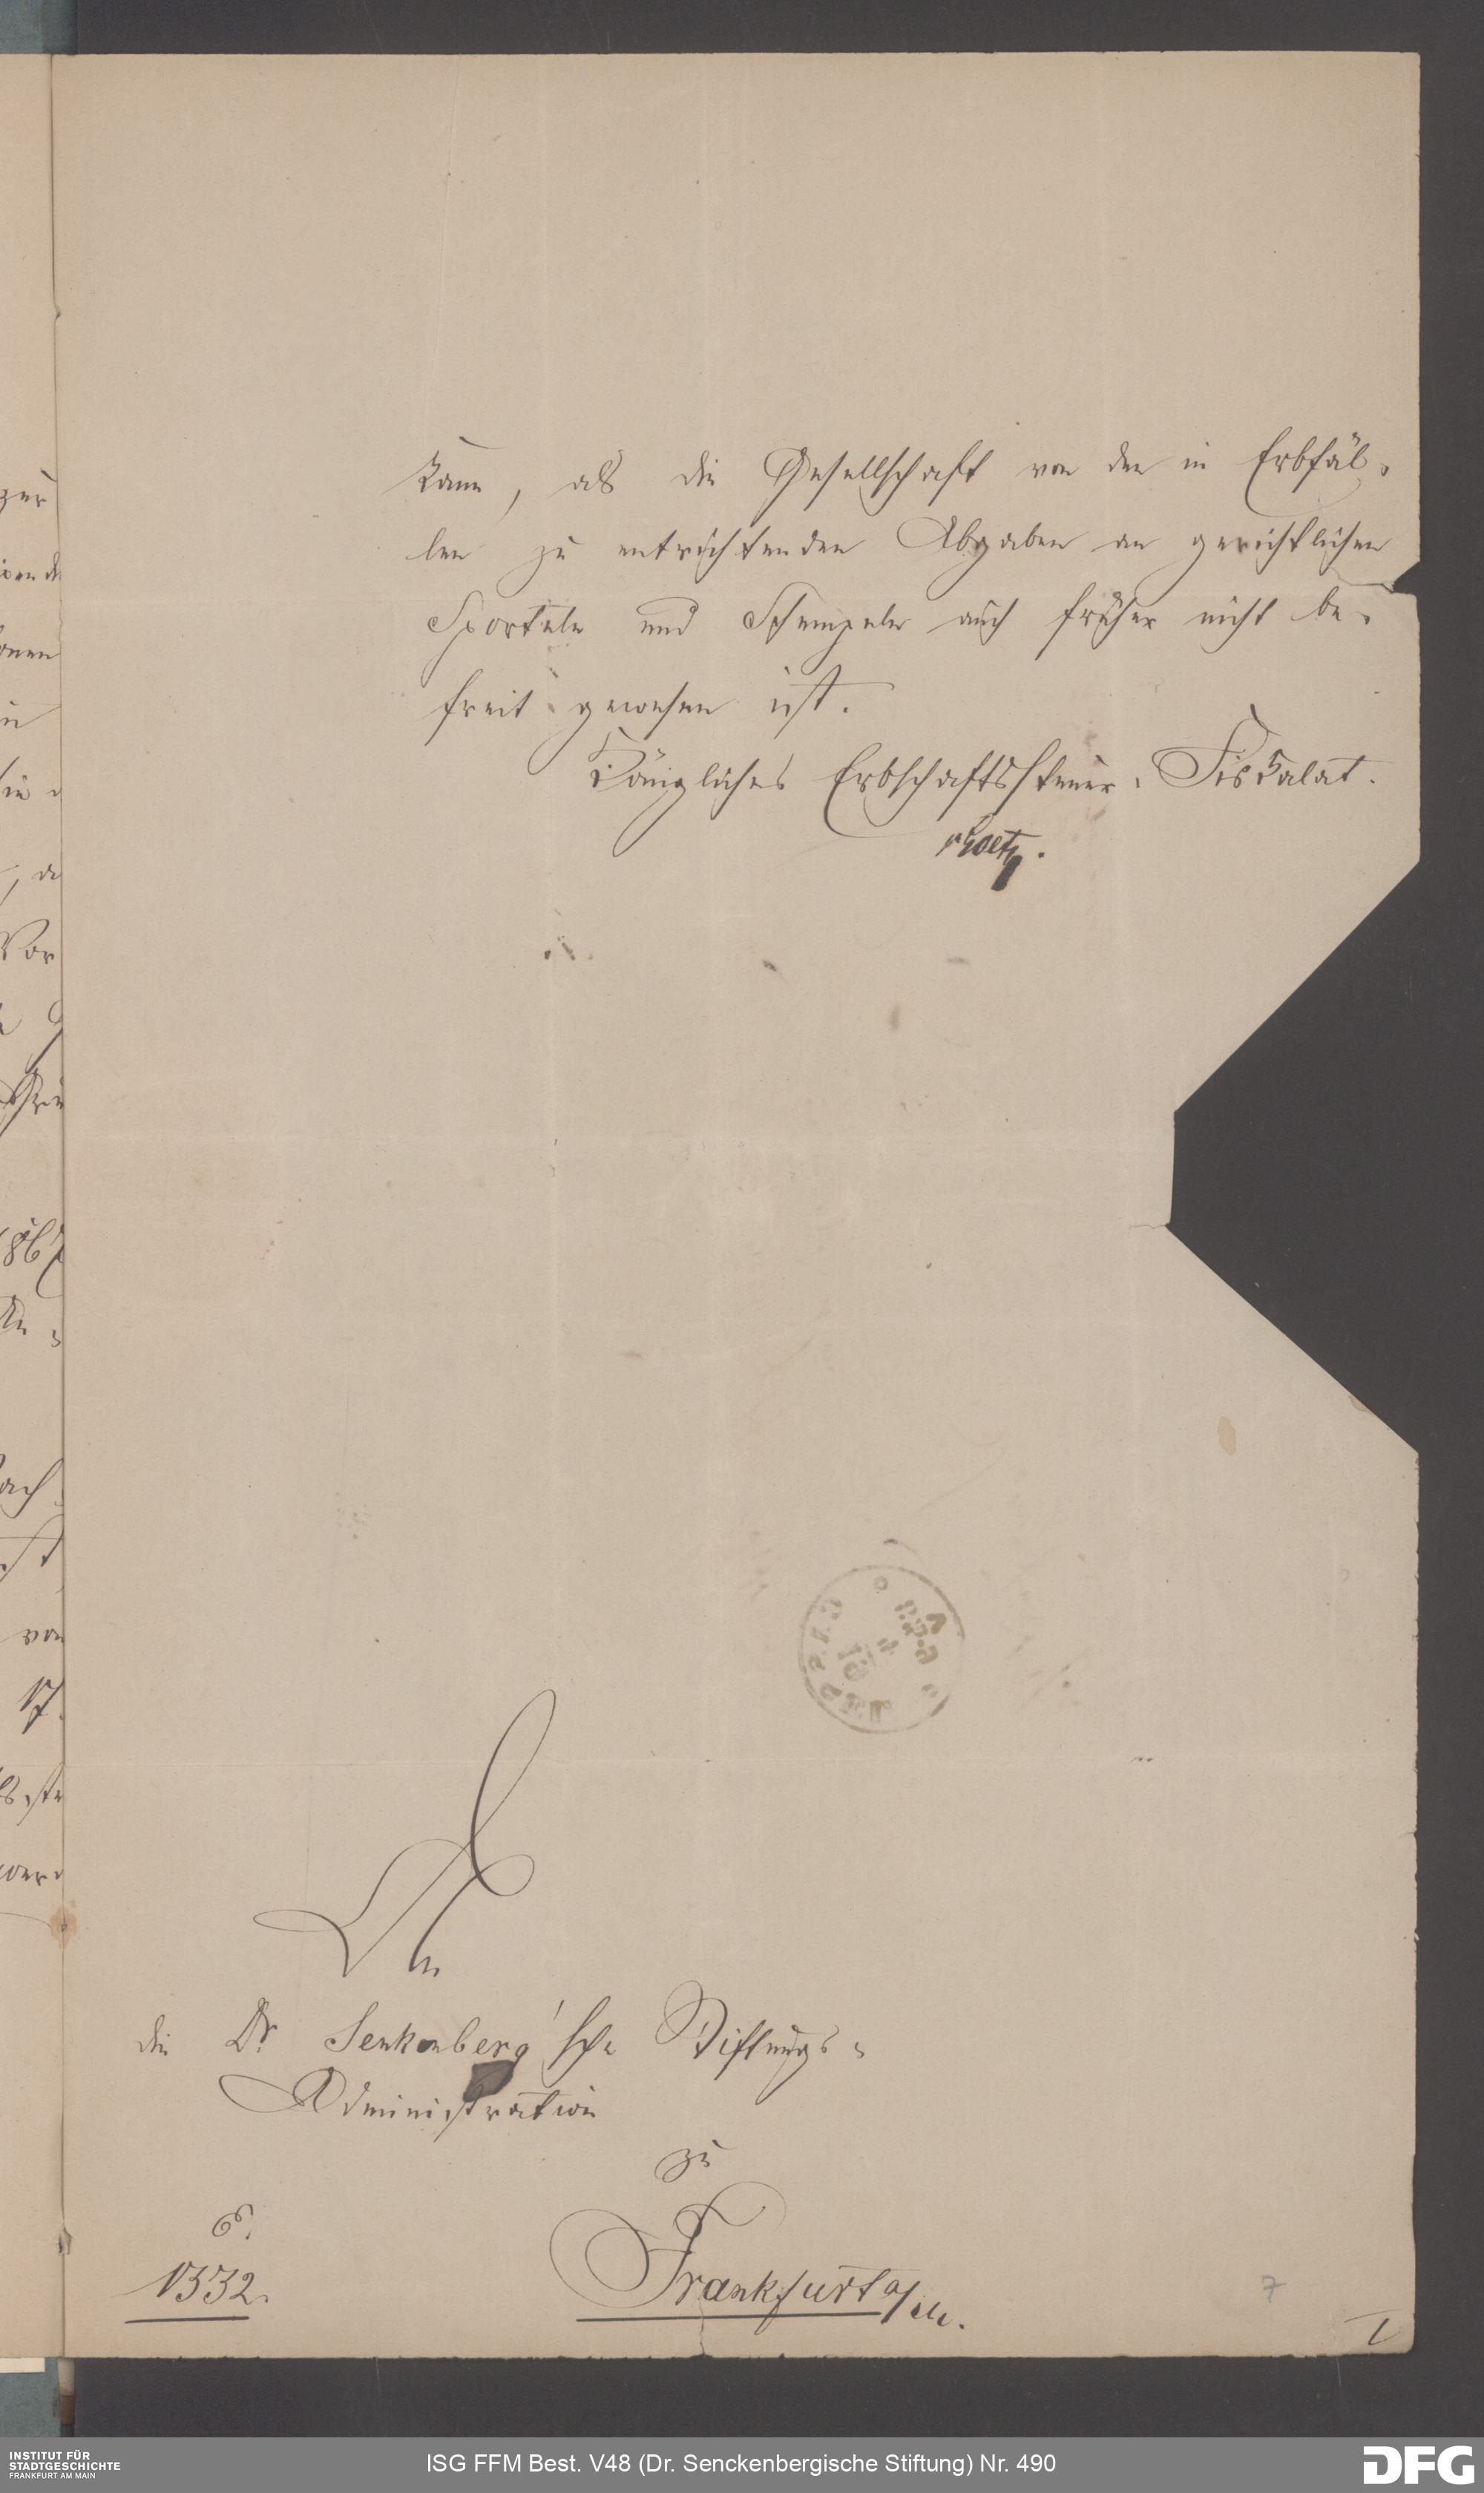 kann, als die Gesellschaft von den in Erbfäl-
len zu entrichtenden Abgaben an gerichtlichen
Sporteln und Stempeln auch früher nicht be-
freit gewesen ist.
Königliches Erbschaftssteuer-Fiskalat.
An
die Dr. Senkenberg'sche Stiftungs-
Administration
zu
Frankfurt a/M.
1332.
7
INSTITUT FÜR
STADTGESCHICHTE
FRANKFURT AM MAIN
ISG FFM Best. V48 (Dr. Senckenbergische Stiftung) Nr. 490
DFG